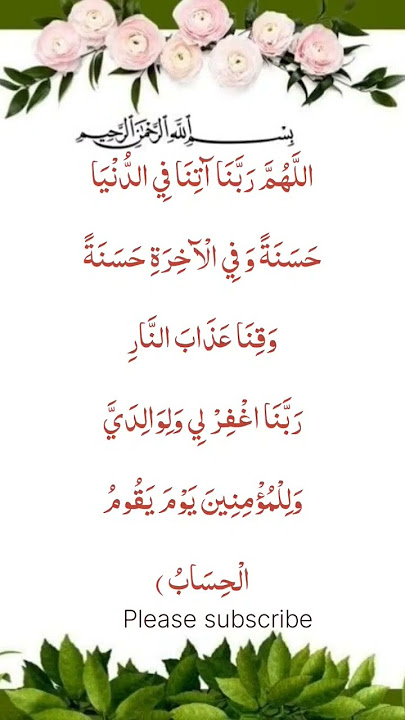 بِسْمِ اللَّهِ الرَّحْمَٰنِ الرَّحِيمِ
اللَّهُمَّ رَبَّنَا آتِنَا فِي الدُّنْيَا
حَسَنَةً وَفِي الْآخِرَةِ حَسَنَةً
وَقِنَا عَذَابَ النَّارِ
رَبَّنَا اغْفِرْ لِي وَلِوَالِدَيَّ
وَلِلْمُؤْمِنِينَ يَوْمَ يَقُومُ
الْحِسَابُ )
Please subscribe